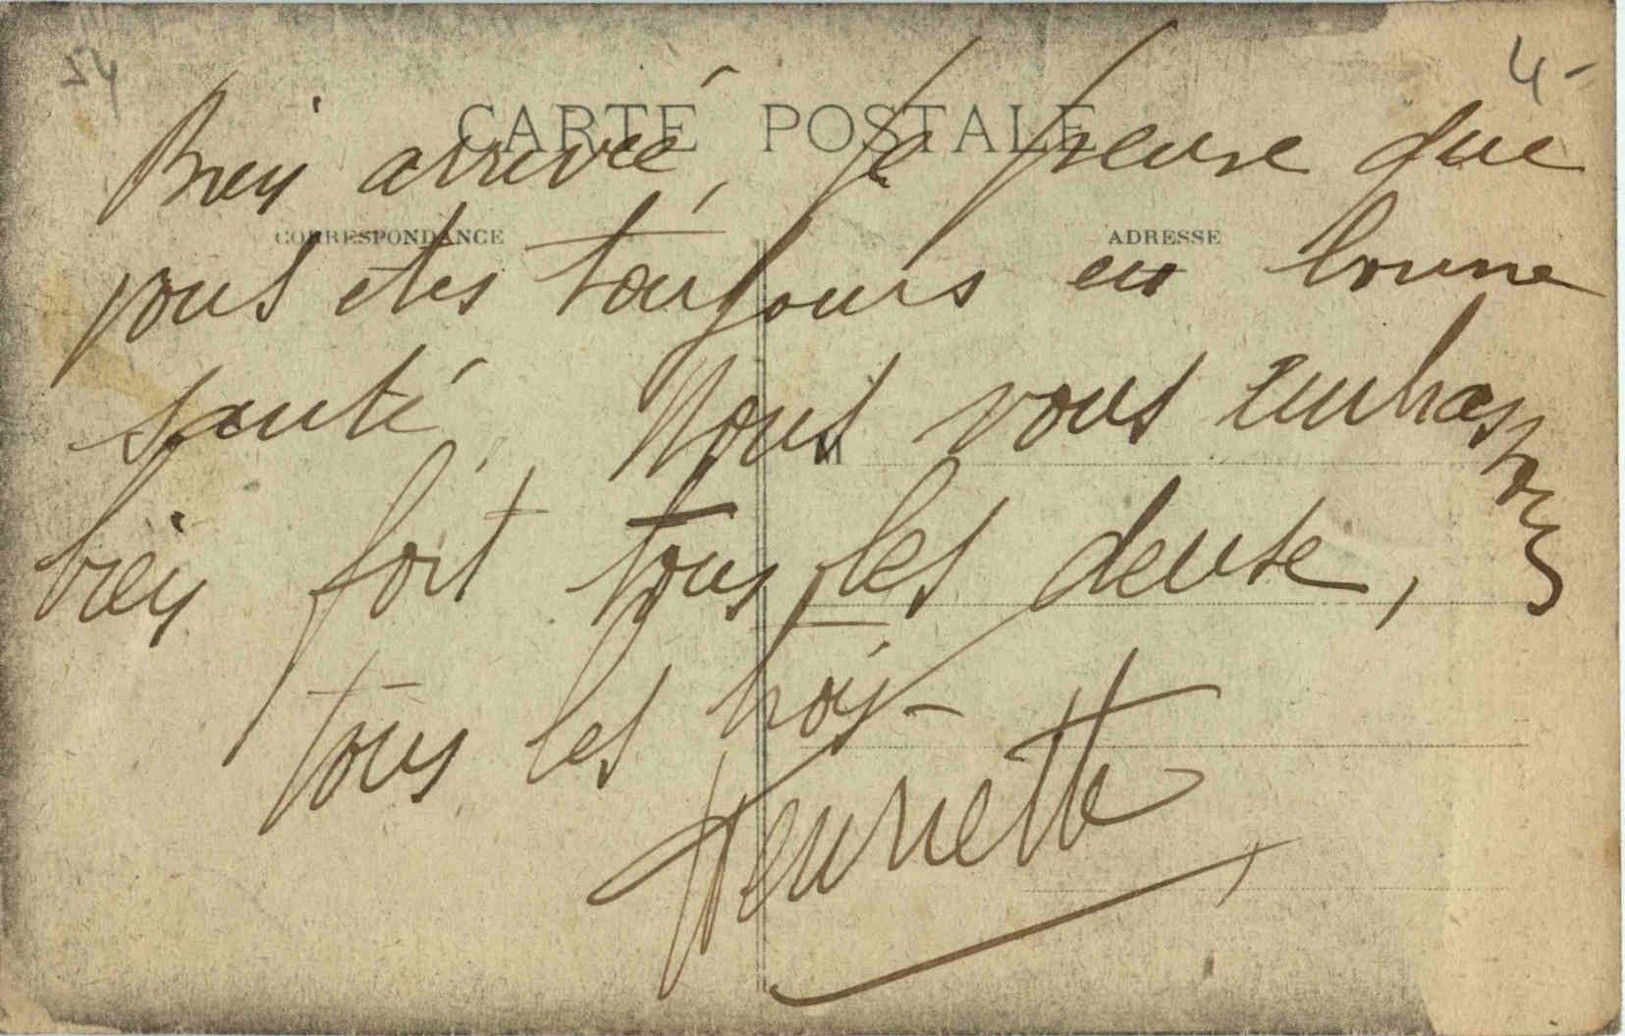 4-
CARTE POSTALE
Bien arrivée, Je pense que
CORRESPONDANCE
ADRESSE
vous êtes toujours en bonne
santé, Nous vous embrassons
M
bien fort tous les deux,
tous les trois -
Henriette